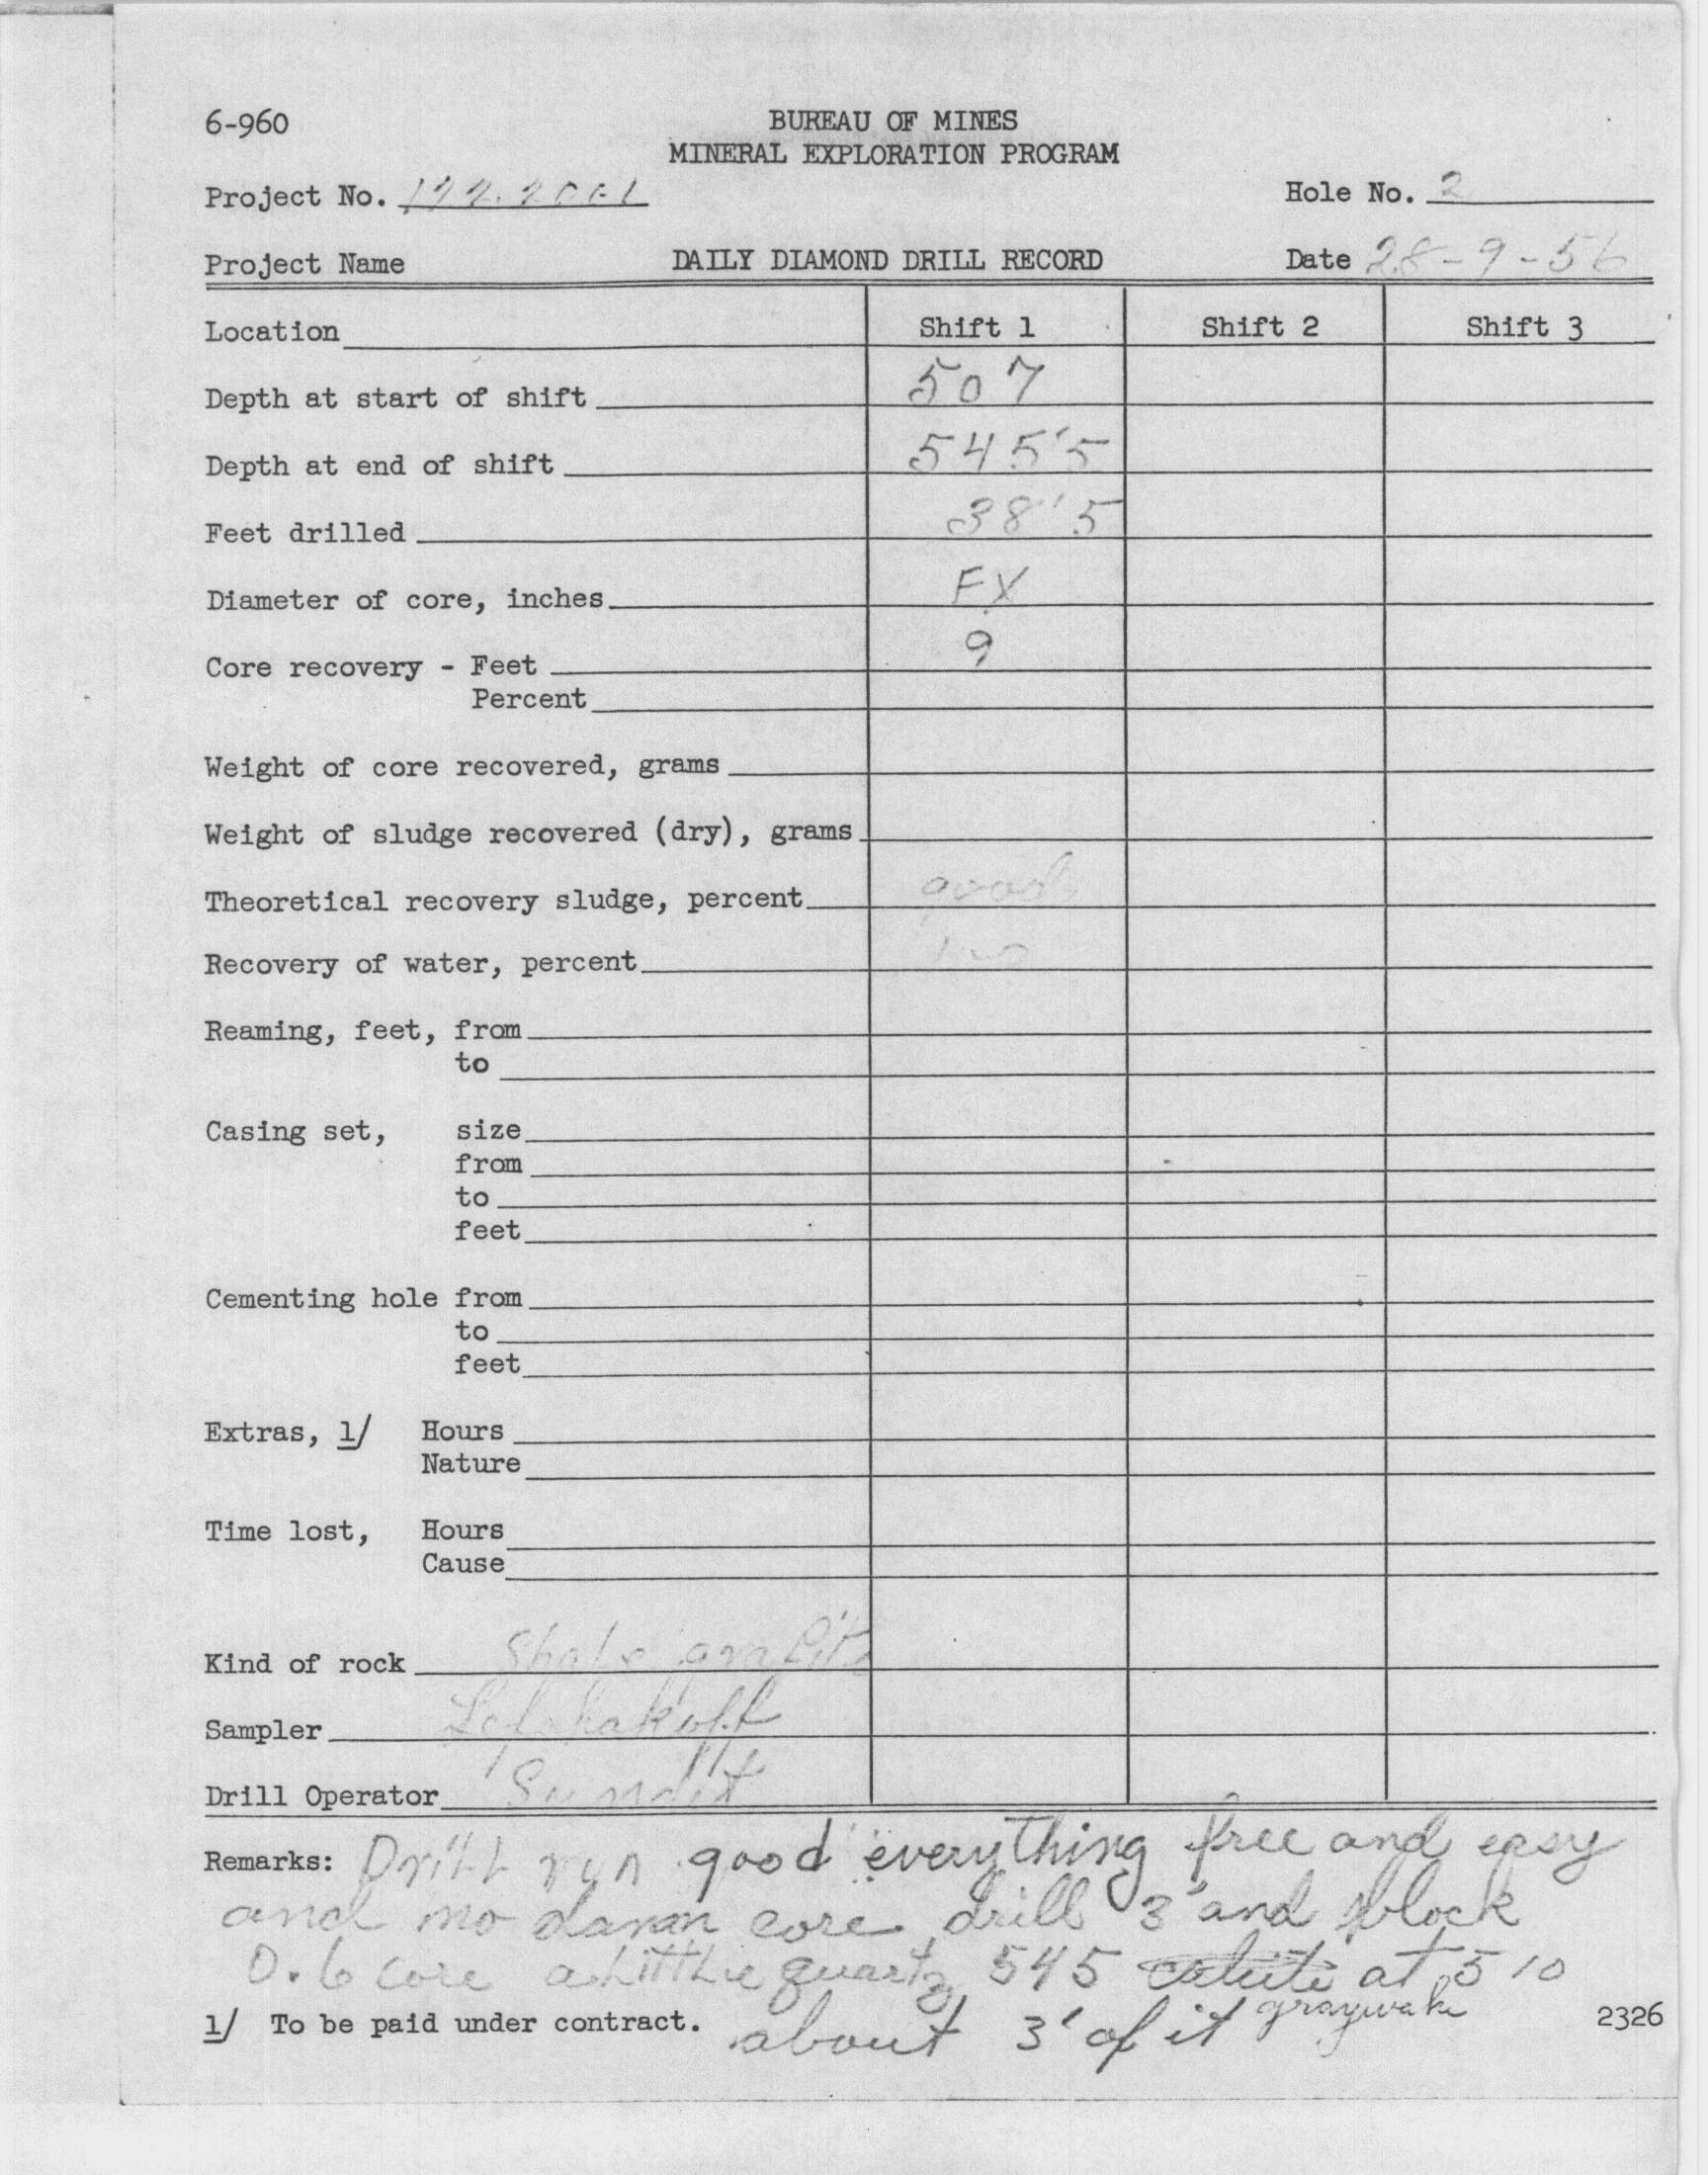 6-960
BUREAU OF MINES
MINERAL EXPLORATION PROGRAM
Project No.
Hole No. 2
Project Name
DAILY DIAMOND DRILL RECORD
Date 28-9-56
Location Shift 1 Shift 2 Shift 3
Depth at start of shift 507
Depth at end of shift 545'5
Feet drilled 38'5
Diameter of core, inches EX
Core recovery - Feet 9
Percent
Weight of core recovered, grams
Weight of sludge recovered (dry), grams
Theoretical recovery sludge, percent good
Recovery of water, percent
Reaming, feet, from
to
Casing set, size
from
to
feet
Cementing hole from
to
feet
Extras, 1/ Hours
Nature
Time lost, Hours
Cause
Kind of rock Shale
Sampler
Drill Operator
Remarks: Drill run good everything free and easy
and no damn core drill 3' and block
0.6 core a Litthie quartz 545 at 510
graywake
1/ To be paid under contract. about 3' of it
2326